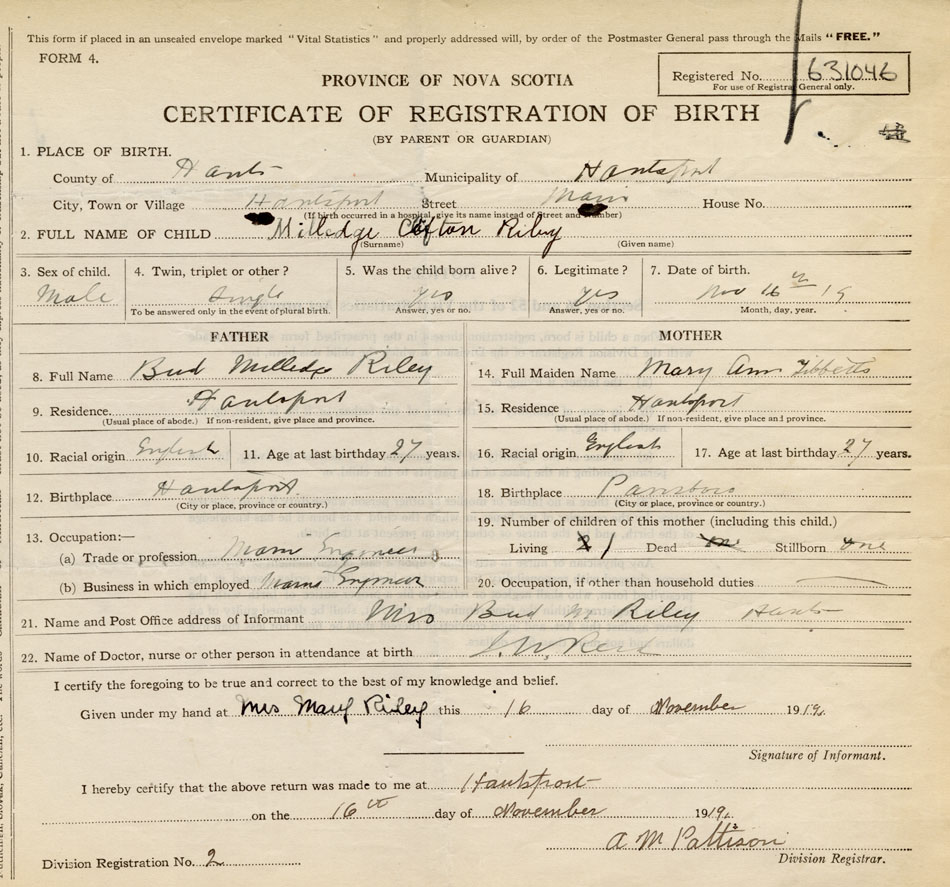 This form if placed in an unsealed envelope marked "Vital Statistics" and properly addressed will, by order of the Postmaster General pass through the Mails "FREE."
FORM 4.
PROVINCE OF NOVA SCOTIA
Registered No. 631046
For use of Registrar General only.
CERTIFICATE OF REGISTRATION OF BIRTH
(BY PARENT OR GUARDIAN)
1. PLACE OF BIRTH.
County of Hants Municipality of Hantsport
City, Town or Village Hantsport Street Main House No.
(If birth occurred in a hospital, give its name instead of Street and Number)
2. FULL NAME OF CHILD Milledge Clifton Riley
(Surname) (Given name)
3. Sex of child. 4. Twin, triplet or other? 5. Was the child born alive? 6. Legitimate? 7. Date of birth.
Male Single yes yes Nov 16th 19
To be answered only in the event of plural birth. Answer, yes or no. Answer, yes or no. Month, day, year.
FATHER MOTHER
8. Full Name Bud Milledge Riley 14. Full Maiden Name Mary Ann Tibbetts
9. Residence. Hantsport 15. Residence Hantsport
(Usual place of abode.) If non-resident, give place and province. (Usual place of abode.) If non-resident, give place and province.
10. Racial origin English 11. Age at last birthday 27 years. 16. Racial origin English 17. Age at last birthday 27 years.
12. Birthplace Hantsport 18. Birthplace Parrsboro
(City or place, province or country.) (City or place, province or country.)
19. Number of children of this mother (including this child.)
13. Occupation:—
(a) Trade or profession Engineer Living 1 Dead Stillborn one
(b) Business in which employed Engineer 20. Occupation, if other than household duties
21. Name and Post Office address of Informant Mrs Bud M Riley Hants
22. Name of Doctor, nurse or other person in attendance at birth
I certify the foregoing to be true and correct to the best of my knowledge and belief.
Given under my hand at Mrs Mary Riley this 16 day of November 1919.
Signature of Informant.
I hereby certify that the above return was made to me at Hantsport
on the 16th day of November 1919.
A M Pattison
Division Registration No. 2 Division Registrar.